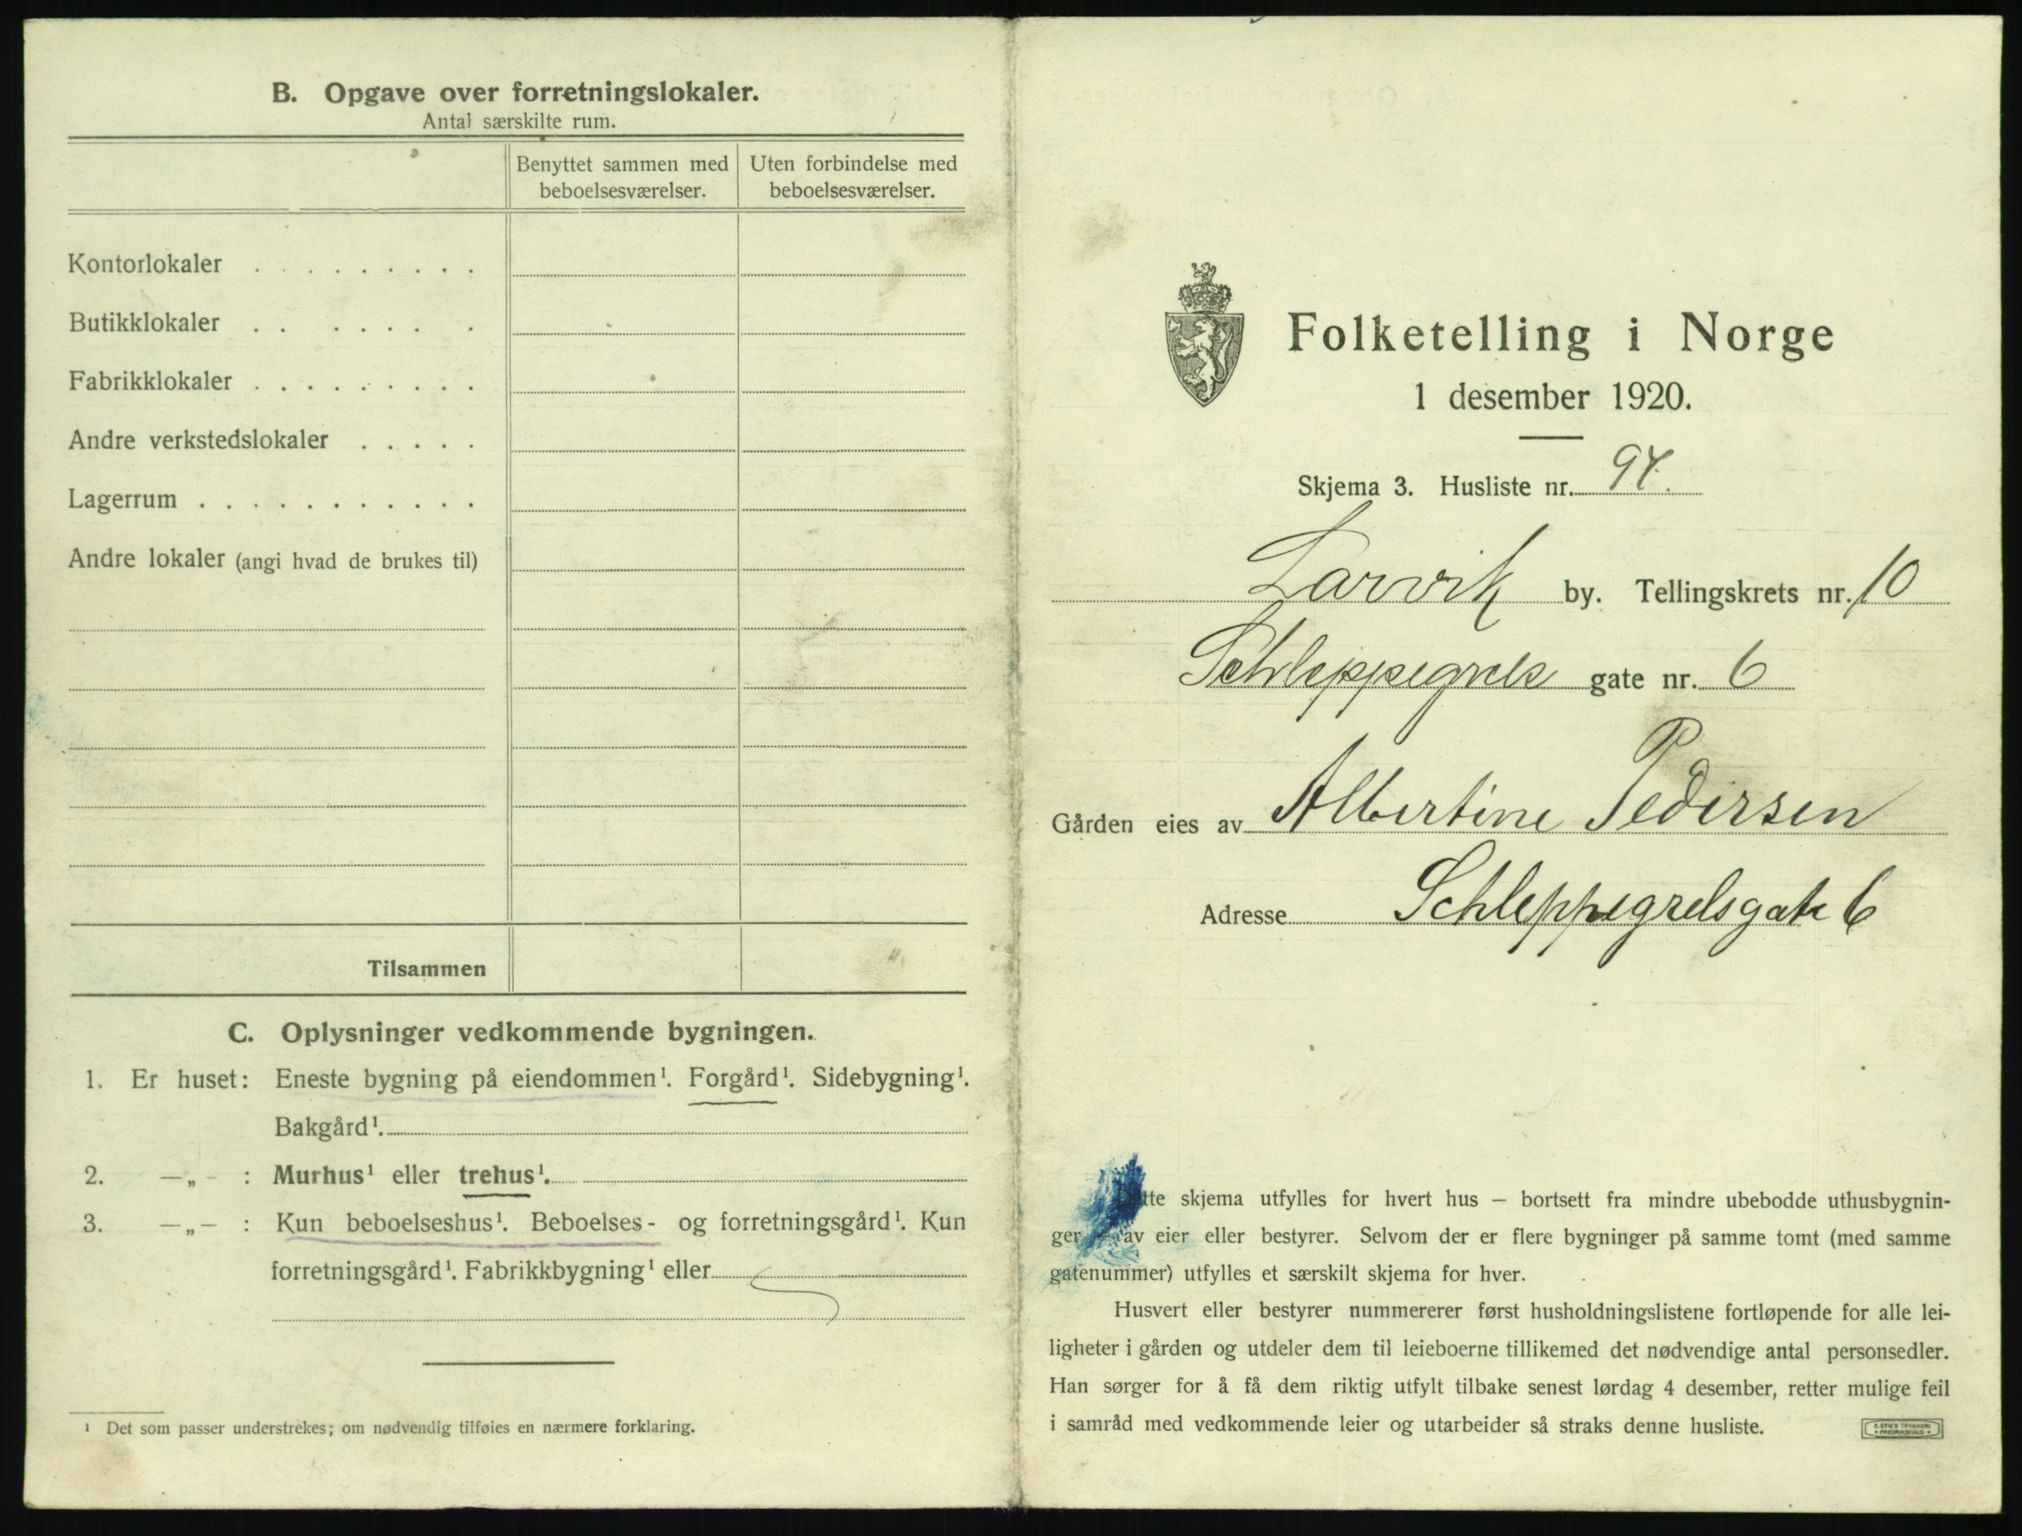 B. Opgave over forretningslokaler.
Antal særskilte rum.
Benyttet sammen med beboelsesværelser.
Uten forbindelse med beboelsesværelser.
Kontorlokaler . . . . . . . . .
Butikklokaler . . . . . . .
Fabrikklokaler . . . . . . . . .
Andre verkstedslokaler . . . . .
Lagerrum . . . . . . . . . . .
Andre lokaler (angi hvad de brukes til)
Tilsammen
C. Oplysninger vedkommende bygningen.
1. Er huset: Eneste bygning på eiendommen¹. Forgård¹. Sidebygning¹.
Bakgård¹.
2. —„— : Murhus¹ eller trehus¹.
3. —„— : Kun beboelseshus¹. Beboelses- og forretningsgård¹. Kun
forretningsgård¹. Fabrikkbygning¹ eller
¹ Det som passer understrekes; om nødvendig tilføies en nærmere forklaring.
Folketelling i Norge
1 desember 1920.
Skjema 3. Husliste nr. 94.
Larvik by. Tellingskrets nr. 10
Schleppegrels gate nr. 6
Gården eies av Albertine Pedersen
Adresse Schleppegrelsgate 6
Dette skjema utfylles for hvert hus – bortsett fra mindre ubebodde uthusbygnin-
ger – av eier eller bestyrer. Selvom der er flere bygninger på samme tomt (med samme
gatenummer) utfylles et særskilt skjema for hver.
Husvert eller bestyrer nummererer først husholdningslistene fortløpende for alle lei-
ligheter i gården og utdeler dem til leieboerne tillikemed det nødvendige antal personsedler.
Han sørger for å få dem riktig utfylt tilbake senest lørdag 4 desember, retter mulige feil
i samråd med vedkommende leier og utarbeider så straks denne husliste.